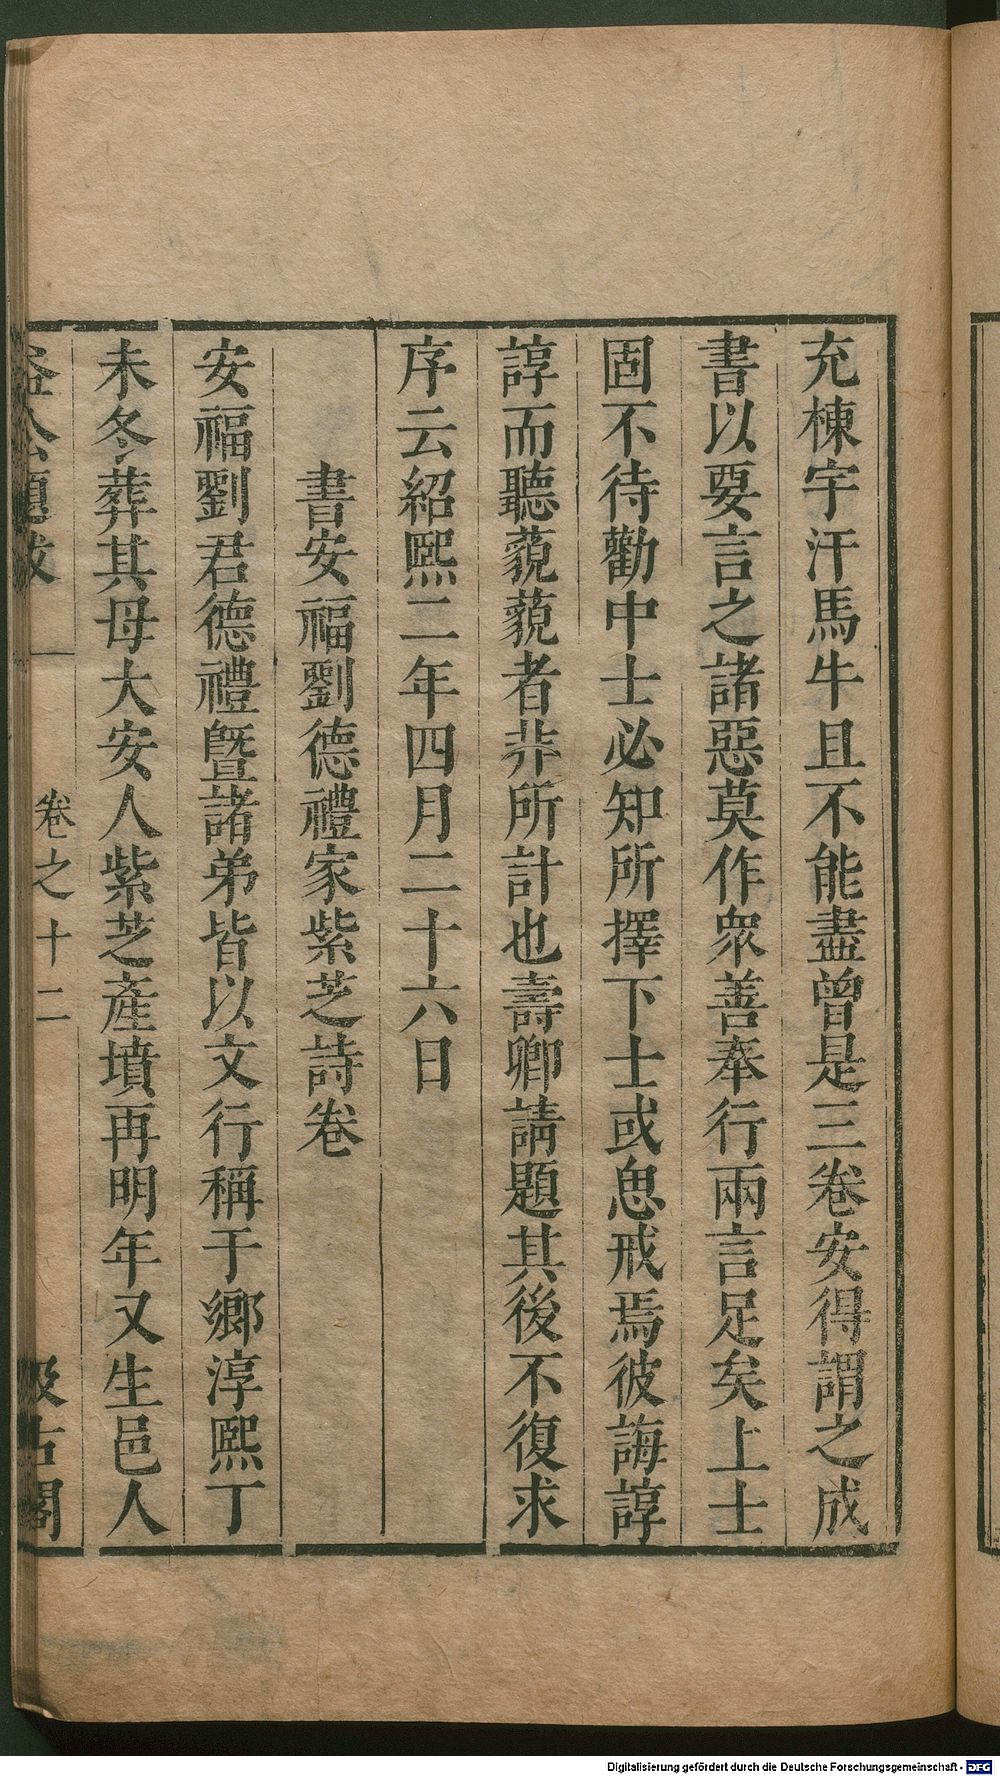 充棟宇汗馬牛且不能盡曾是三卷安得謂之成
書以要言之諸惡莫作衆善奉行兩言足矣上士
固不待勸中士必知所擇下士或思戒焉彼誨諄
諄而聽藐藐者非所計也壽卿請題其後不復求
序云紹熙二年四月二十六日
書安福劉德禮家紫芝詩卷
安福劉君德禮暨諸弟皆以文行稱于鄉淳熙丁
未冬葬其母大安人紫芝產墳再明年又生邑人
益公題跋 卷之十二 汲古閣
Digitalisierung gefördert durch die Deutsche Forschungsgemeinschaft - DFG